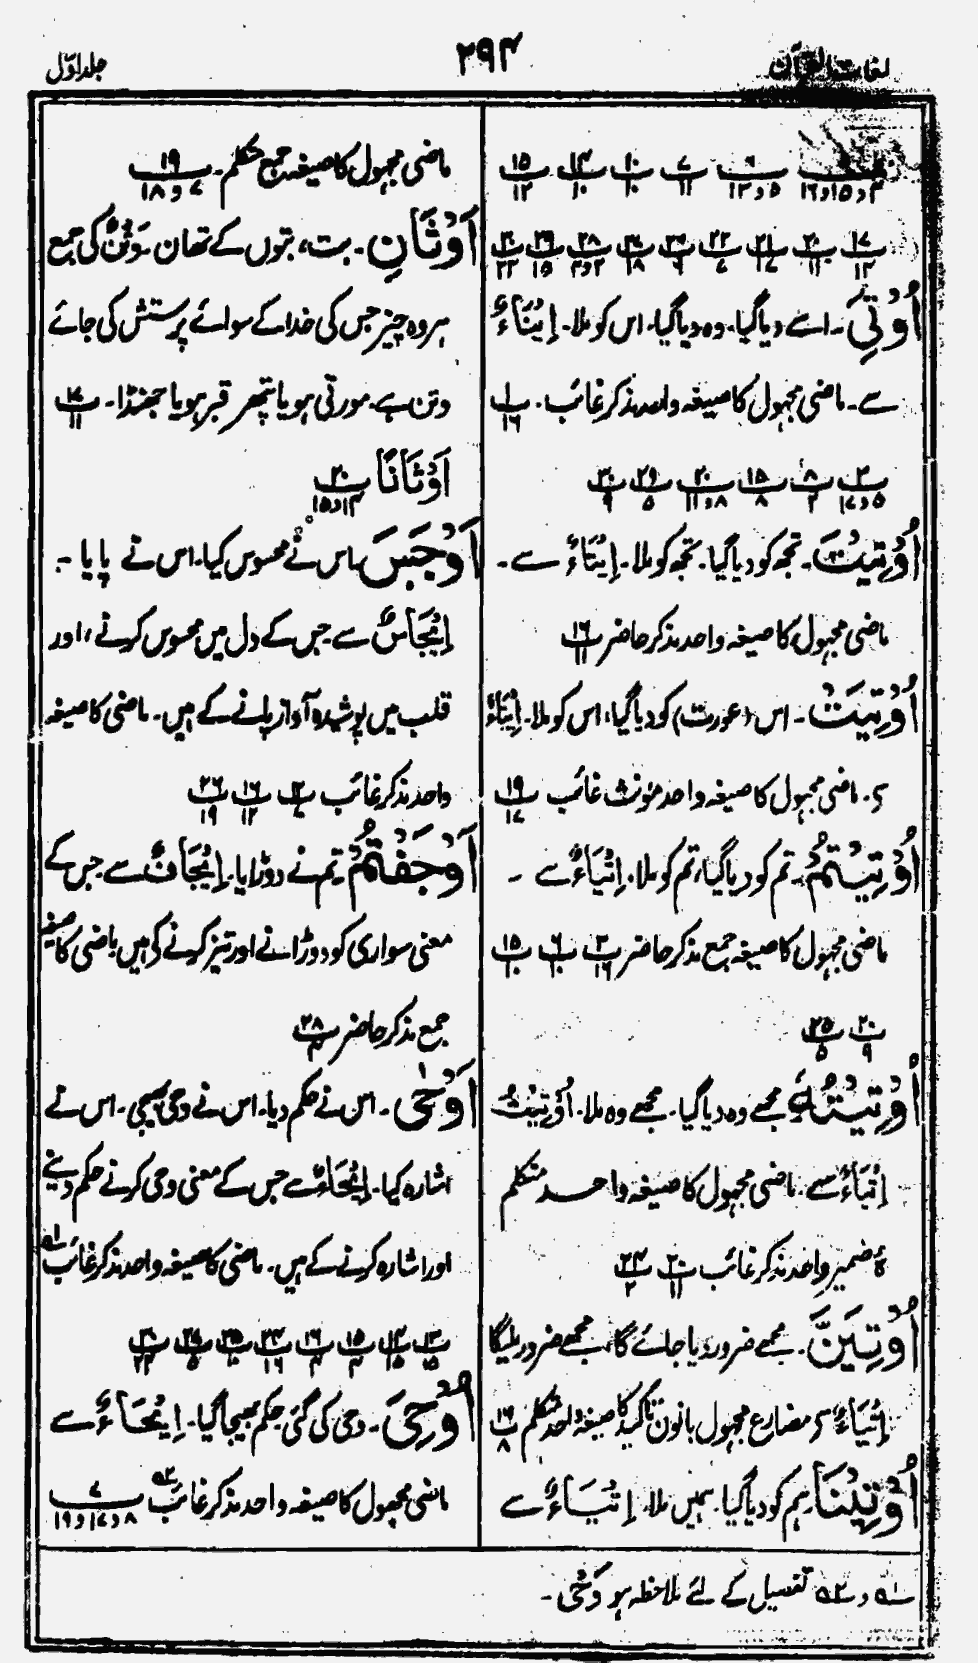 لغات القرآن
۲۹۴
جلد اوّل
۱۵/۱۲ ۱۴/۱۰ ۱۰/۱۰ ۷/۱۱ ۶/۵و۱۲
۱۷/۱۲ ۲۰/۱۱ ۲۱/۱۷ ۲۲/۷
اُوْتِیَ۔ اسے دیا گیا۔ وہ دیا گیا۔ اس کو ملا۔ اِیْتَاءٌ
سے۔ ماضی مجہول کا صیغہ واحد مذکر غائب۔ ۱/۱۶
۳/۵و۱۷ ۸/۲ ۱۵/۸ ۲۰/۸و۱۱ ۲۹/۵ ۳۰/۹
اُوْتِیْتَ۔ تجھ کو دیا گیا۔ تجھ کو ملا۔ اِیْتَاءٌ سے۔
ماضی مجہول کا صیغہ واحد مذکر حاضر ۱۶/۱۱
اُوْتِیَتْ۔ اس (عورت) کو دیا گیا، اس کو ملا۔ اِیْتَاءٌ
سے۔ ماضی مجہول کا صیغہ واحد مؤنث غائب ۱۹/۱۷
اُوْتِیْتُمْ۔ تم کو دیا گیا، تم کو ملا، اِیْتَاءٌ سے۔
ماضی مجہول کا صیغہ جمع مذکر حاضر ۳/۱۶ ۶/۱۰ ۱۵/۱۰
۲۰/۹ ۲۵/۵
اُوْتِیْتُهٗ۔ مجھے وہ دیا گیا۔ مجھے وہ ملا۔ اُوْتِیْتُ
اِیْتَاءٌ سے۔ ماضی مجہول کا صیغہ واحد متکلم
هٗ ضمیر واحد مذکر غائب ۲۰/۱۱ ۲۴/۲
اُوْتَیَنَّ۔ مجھے ضرور دیا جائے گا، مجھے ضرور ملیگا
اِیْتَاءٌ سے مضارع مجہول بانون تاکید کا صیغہ واحد متکلم ۱۶/۸
اُوْتِیْنَا۔ ہم کو دیا گیا۔ ہمیں ملا، اِیْتَاءٌ سے
ماضی مجہول کا صیغہ جمع متکلم۔ ۱۹/۷و۱۸
اَوْثَانِ۔ بت، بتوں کے تھان۔ وَثَنٌ کی جمع
ہر وہ چیز جس کی خدا کے سوائے پرستش کی جائے
وثن ہے۔ مورتی ہو یا پتھر قبر ہو یا جھنڈا۔ ۱۷/۱۱
اَوْثَانًا ۲۰/۱۴و۱۵
اَوْجَسَ، اس نے محسوس کیا۔ اس نے پایا۔
اِیْجَاسٌ سے جس کے دل میں محسوس کرنے، اور
قلب میں پوشیدہ آواز پانے کے ہیں۔ ماضی کا صیغہ
واحد مذکر غائب ۱۲/۷ ۱۶/۱۲ ۲۶/۱۹
اَوْجَفْتُمْ تم نے دوڑایا۔ اِیْجَافٌ سے جس کے
معنی سواری کو دوڑانے اور تیز کرنے کے ہیں ماضی کا صیغہ
جمع مذکر حاضر ۲۸/۴
اَوْحٰی۔ اس نے حکم دیا۔ اس نے وحی بھیجی۔ اس نے
اشارہ کیا۔ اِیْحَاءٌ سے جس کے معنی وحی کرنے حکم دینے
اور اشارہ کرنے کے ہیں۔ ماضی کا صیغہ واحد مذکر غائب ۱ھ
۱۳/۱۵ ۱۴/۱۵ ۱۵/۴ ۱۶/۴ ۲۴/۱۶ ۲۵/۸ ۲۷/۵ ۳۰/۲۴
اُوْحِیَ۔ وحی کی گئی حکم بھیجا گیا۔ اِیْحَاءٌ سے
ماضی مجہول کا صیغہ واحد مذکر غائب ۲ھ ۷/۸و۱۷و۱۹
۱ھ و ۲ھ تفصیل کے لئے ملاحظہ ہو وَحْی۔